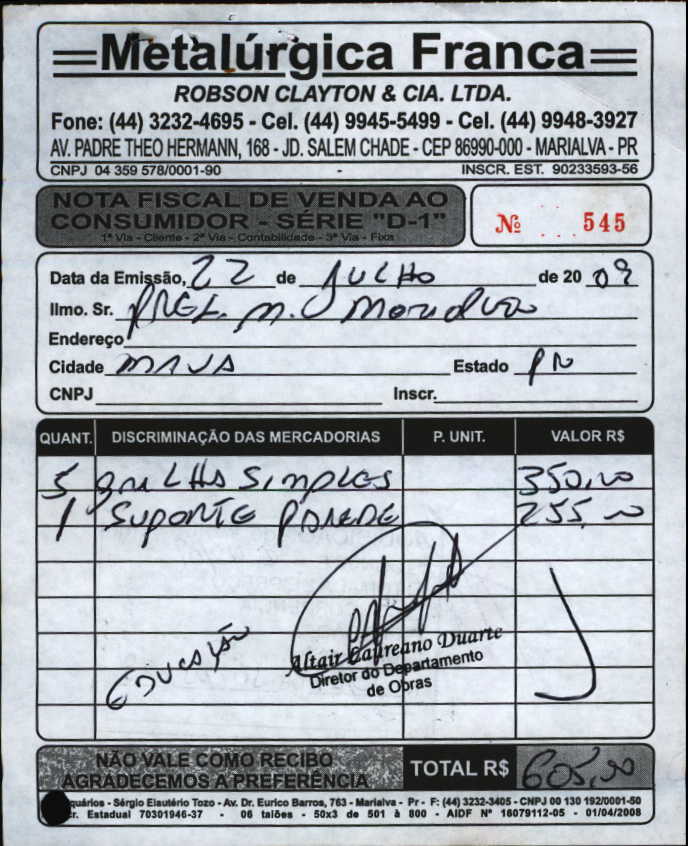 Metalúrgica Franca
ROBSON CLAYTON & CIA. LTDA.
Fone: (44) 3232-4695 - Cel. (44) 9945-5499 - Cel. (44) 9948-3927
AV. PADRE THEO HERMANN, 168 - JD. SALEM CHADE - CEP 86990-000 - MARIALVA - PR
CNPJ 04 359 578/0001-90 INSCR. EST. 90233593-56
NOTA FISCAL DE VENDA AO
CONSUMIDOR - SÉRIE "D-1"
1ª Via - Cliente - 2ª Via - Contabilidade - 3ª Via - Fixa
Nº 545
Data da Emissão, 22 de JULHO de 20 09
Ilmo. Sr. PREF. M.
Endereço
Cidade Estado PR
CNPJ Inscr.
QUANT. DISCRIMINAÇÃO DAS MERCADORIAS P. UNIT. VALOR R$
5 SIMPLES 350,00
1 SUPORTE PAREDE 255,00
EDUCAÇÃO
Altair Laureano Duarte
Diretor do Departamento
de Obras
NÃO VALE COMO RECIBO
AGRADECEMOS A PREFERÊNCIA
TOTAL R$ 605,00
quários - Sérgio Elautério Tozo - Av. Dr. Eurico Barros, 763 - Marialva - Pr - F: (44) 3232-3405 - CNPJ 00 130 192/0001-50
cr. Estadual 70301946-37 - 06 talões - 50x3 de 501 à 800 - AIDF Nº 16079112-05 - 01/04/2008